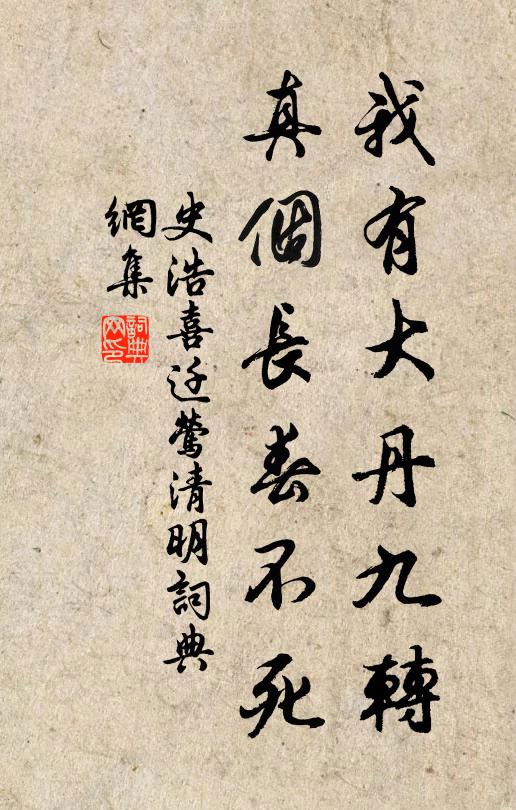 我有大丹九轉
真個長春不死
史浩喜迁鶯清明詞典
網集
詞典网印